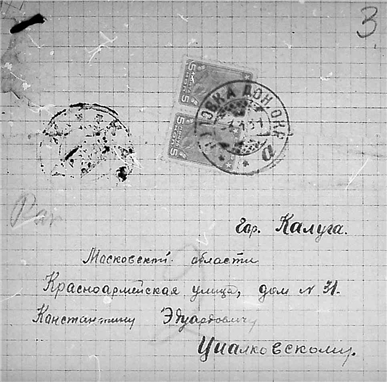 3.
5
5
ЛОВКА ДОН. ОКР.
а
Гор. Калуга.
Московской области
Красноармейская улица, дом № 31.
Канстантину Эдуардовичу
Циалковскому.